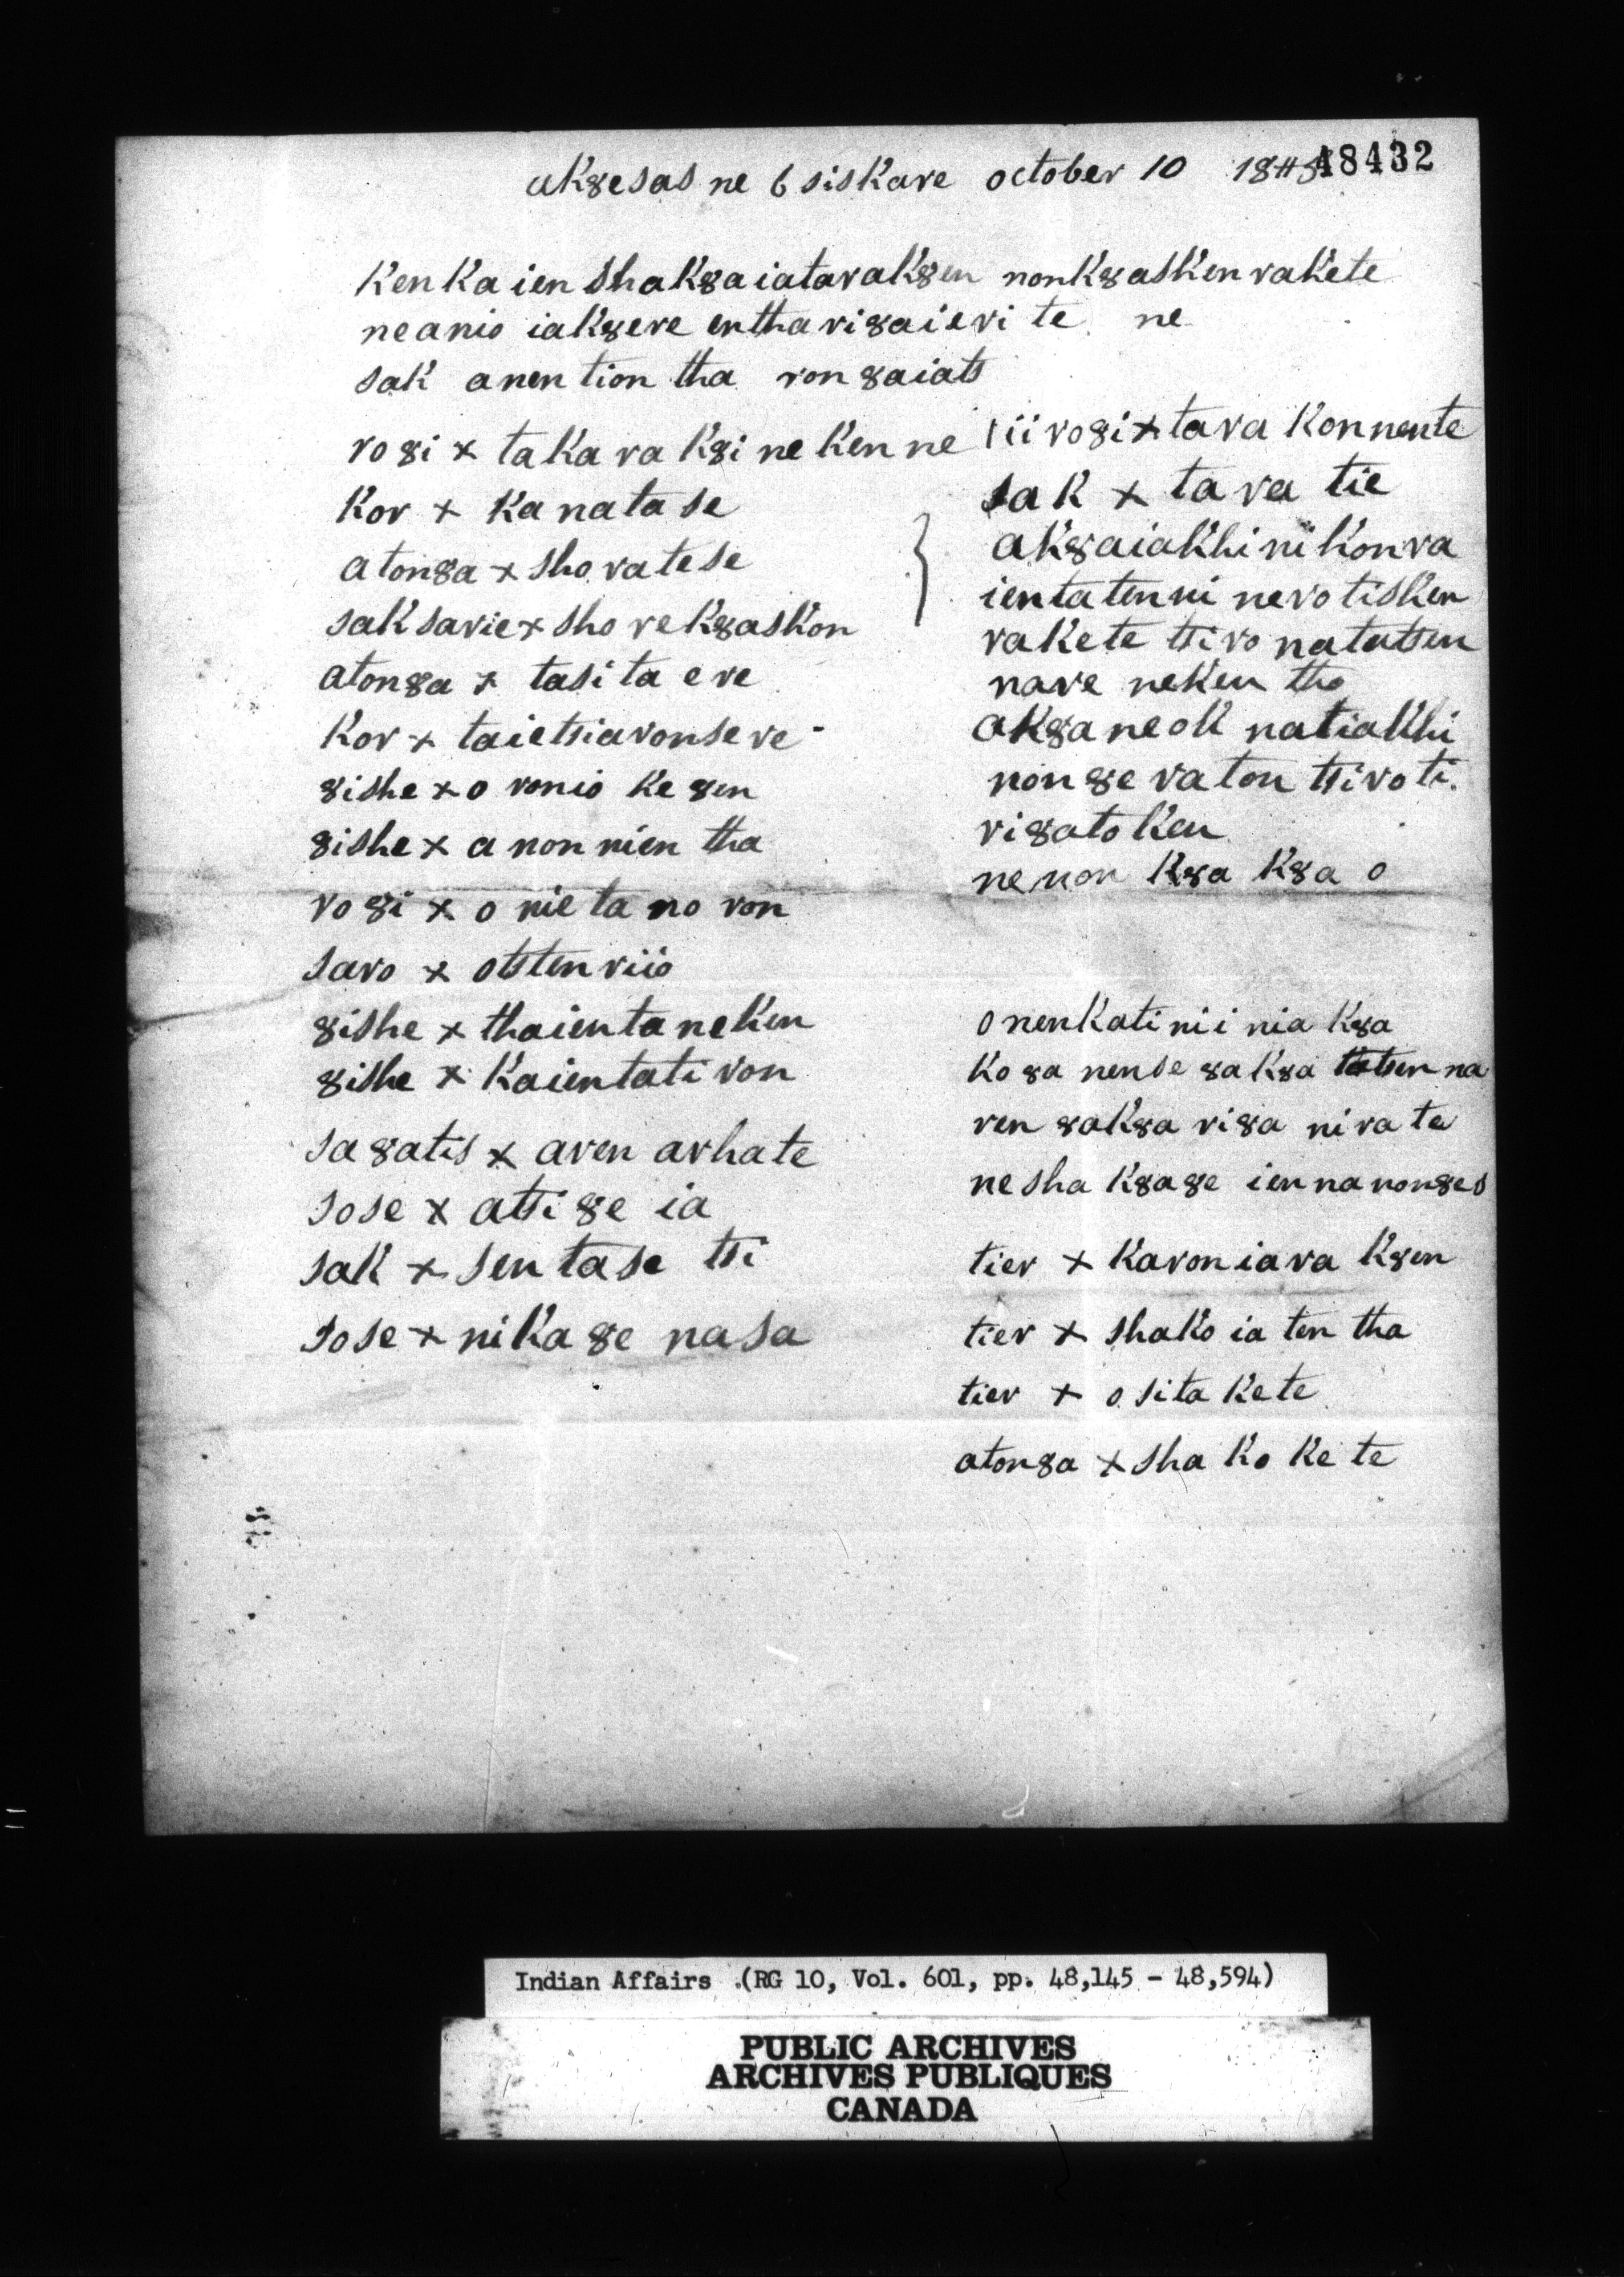 ak8esas ne 6 siskare october 10 184 48432
ken ka ien shak8aiatarak8en nonk8asken rakete
neanio iak8ere entha ri8aieri te ne
sak anen tion tha ron8aiats
ro8i x taka ra k8i ne ken ne
kor x ka nata se
aton8a x sho ra te se
saksarie x sho re k8askon
aton8a x tasi ta e re
kor x taietsiaronse re
8ishe x o ronio ke 8en
8ishe x a non nien tha
ro8i x o nie ta no ron
saro x otsten riio
8ishe x thaienta neken
8ishe x kaientati ron
sa8atis x aren arhate
sose x atsi 8e ia
sak x sen tase tsi
sose x nika8e nasa
iii ro8i x ta ra kon nente
sak x ta ra tie
ak8aiakhi ni konra
ientatenni ne rotisken
rakete tsi ro natatsen
nare neken tho
ak8a ne ok natiakhi
non8e ra ton tsi ro ti.
ri8ato ken
ne non k8a k8a o
onenkati ni i nia k8a
ko8a nense 8ak8a tsen na
ren 8ak8a ri8a ni ra te
ne sha k8a8e ien na non8es
tier x karoniara k8en
tier x shako ia ten tha
tier x o sita kete
aton8a x sha ko ke te
Indian Affairs (RG 10, Vol. 601, pp. 48,145 - 48,594)
PUBLIC ARCHIVES
ARCHIVES PUBLIQUES
CANADA